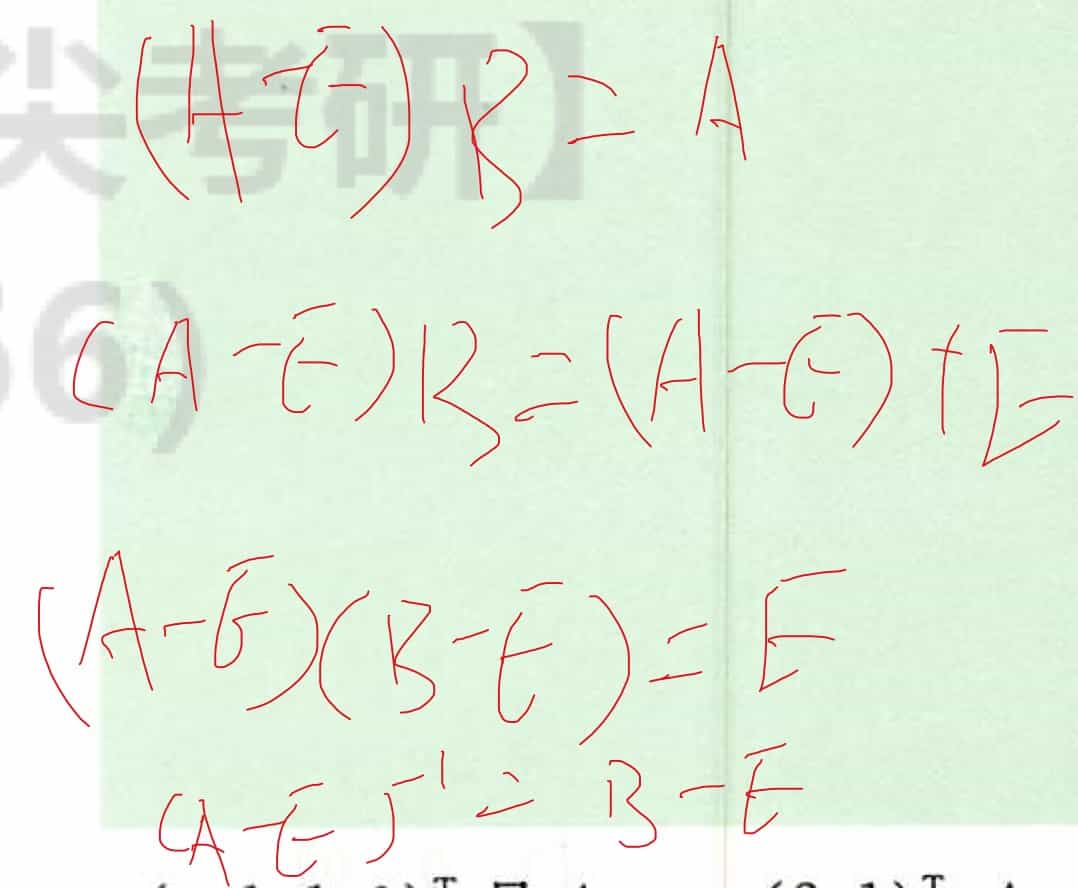 尖考研】
(A-E)B=A
(A-E)B=(A-E)+E
6)
(A-E)(B-E)=E
(A-E)⁻¹=B-E